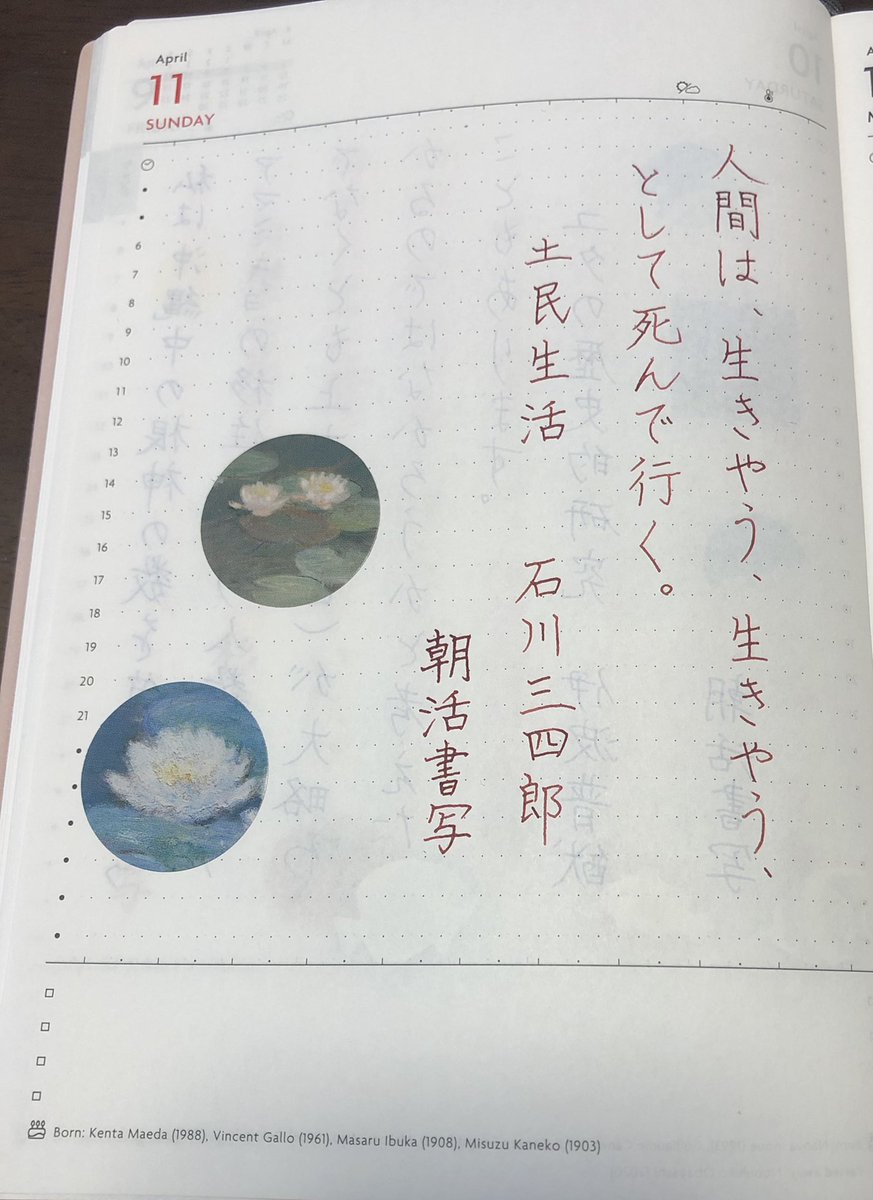 April
11
SUNDAY
人間は、生きやう、生きやう、
として死んで行く。
土民生活 石川三四郎
朝活書写
6
7
8
9
10
11
12
13
14
15
16
17
18
19
20
21
Born: Kenta Maeda (1988), Vincent Gallo (1961), Masaru Ibuka (1908), Misuzu Kaneko (1903)